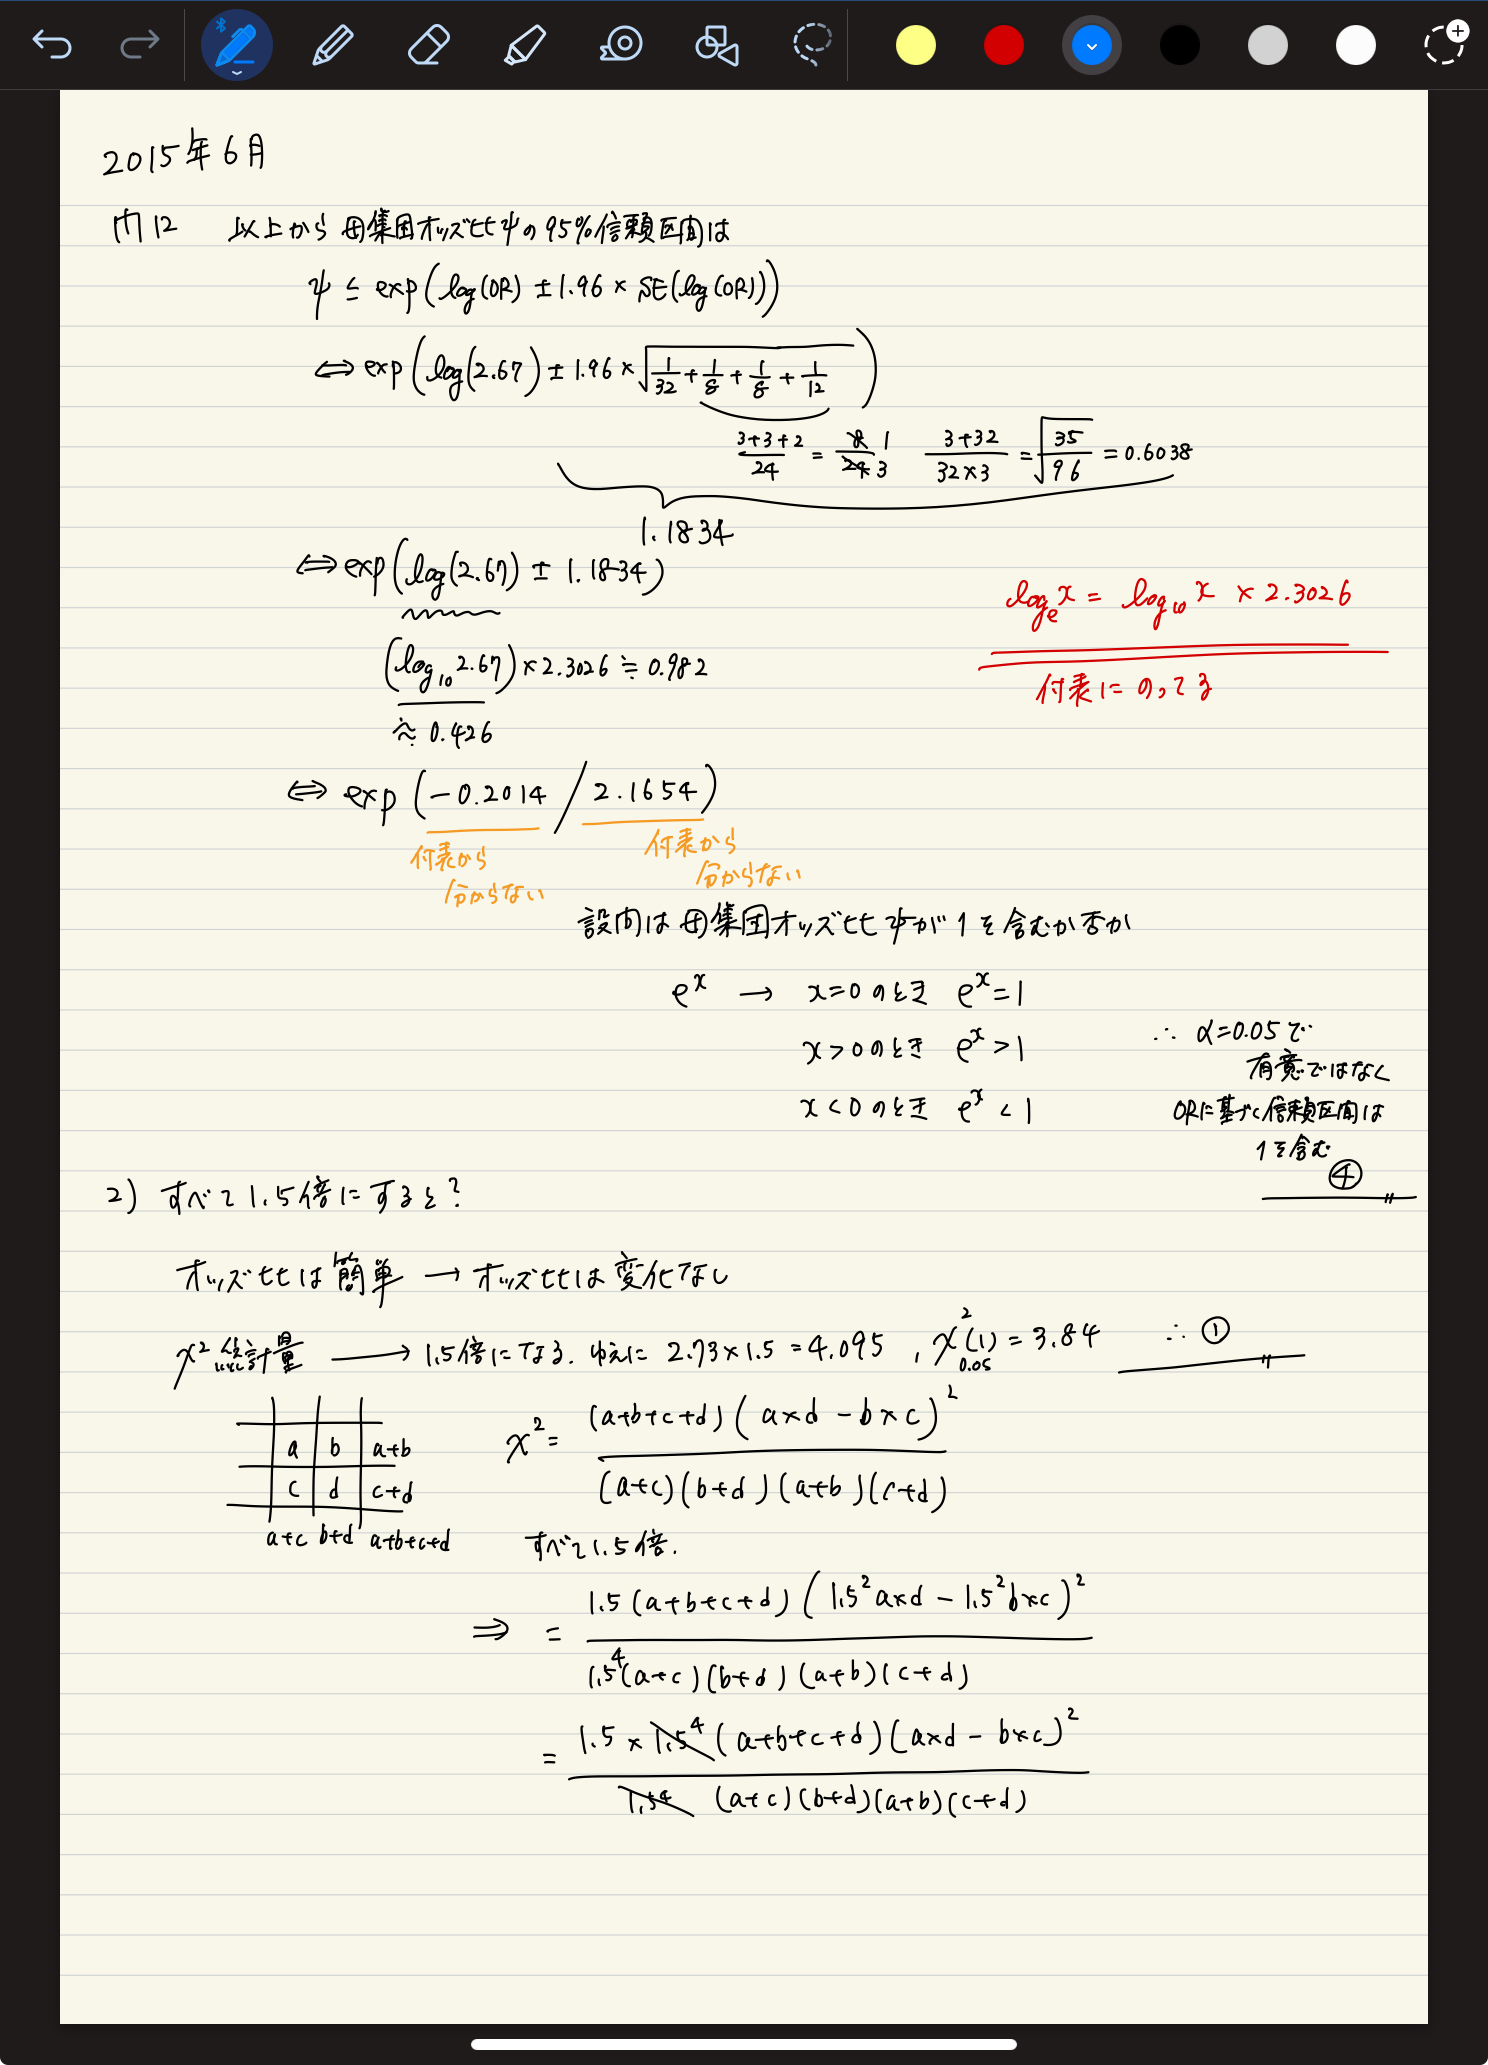 2015年6月
問12 以上から母集団オッズ比ψの95%信頼区間は
ψ ≤ exp(log(OR) ± 1.96 × SE(log(OR)))
⇔ exp(log(2.67) ± 1.96 × √(1/32 + 1/8 + 1/8 + 1/12))
(3+3+2)/24 = 8/24 1/3 (3+32)/(32×3) = √(35/96) = 0.6038
1.1834
⇔ exp(log(2.67) ± 1.1834)
log_e x = log_10 x × 2.3026
(log_10 2.67) × 2.3026 ≒ 0.982
付表にのってる
≒ 0.426
⇔ exp(-0.2014 / 2.1654)
付表から
分からない
付表から
分からない
設問は母集団オッズ比ψが1を含むか否か
e^x → x=0のとき e^x=1
x>0のとき e^x>1
x<0のとき e^x<1
∴ α=0.05で
有意ではなく
ORに基づく信頼区間は
1を含む
④
2) すべて1.5倍にすると?
オッズ比は簡単 → オッズ比は変化なし
χ²統計量 → 1.5倍になる. ゆえに 2.73×1.5=4.095, χ²_0.05(1)=3.84 ∴ ①
a b a+b
c d c+d
a+c b+d a+b+c+d
χ² = (a+b+c+d)(a×d - b×c)² / (a+c)(b+d)(a+b)(c+d)
すべて1.5倍.
⇒ = 1.5(a+b+c+d)(1.5² a×d - 1.5² b×c)² / 1.5⁴(a+c)(b+d)(a+b)(c+d)
= 1.5 × 1.5⁴ (a+b+c+d)(a×d - b×c)² / 1.5⁴ (a+c)(b+d)(a+b)(c+d)